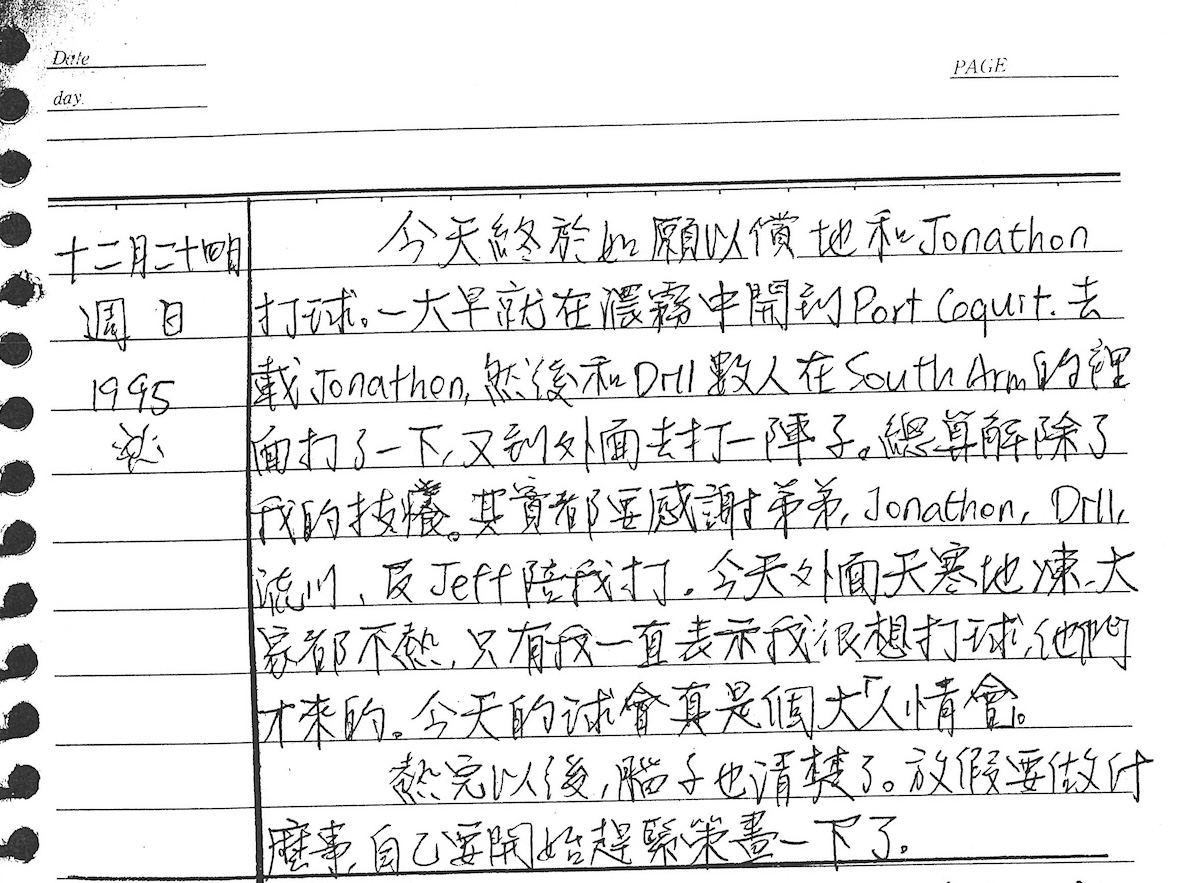 Date
PAGE
day.
十二月二十四日
週日
1995
今天終於如願以償地和Jonathon
打球。一大早就在濃霧中開到Port Coquit.去
載Jonathon,然後和Drill數人在South Arm的裡
面打了一下,又到外面去打一陣子。總算解除了
我的技癢。其實都要感謝弟弟,Jonathon,Drill,
流川、及Jeff陪我打。今天外面天寒地凍、大
家都不熱,只有我一直表示我很想打球,他們
才來的。今天的球會真是個大「人情會」。
熱完以後,腦子也清楚了。放假要做什
麼事,自己要開始趕緊策畫一下了。